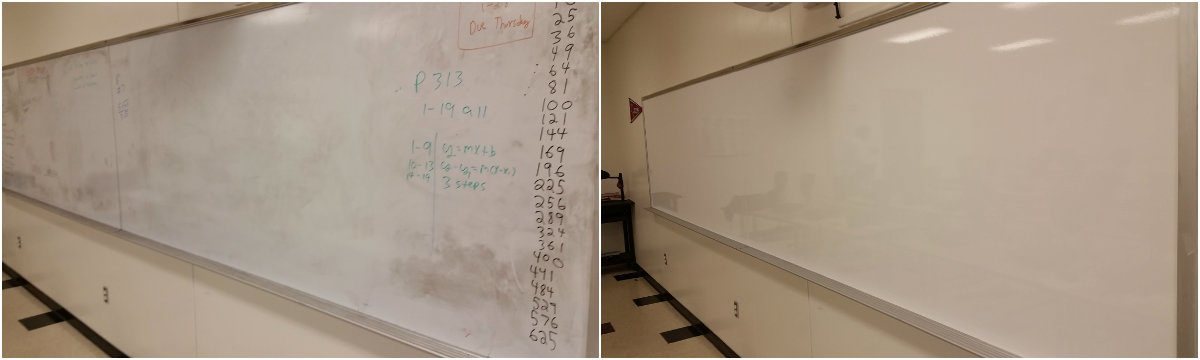 Due Thursday
P 313
1-19 all
1-9 y=mx+b
10-13 y-y₁=m(x-x₁)
14-19 3 steps
25
36
49
64
81
100
121
144
169
196
225
256
289
324
361
400
441
484
527
576
625